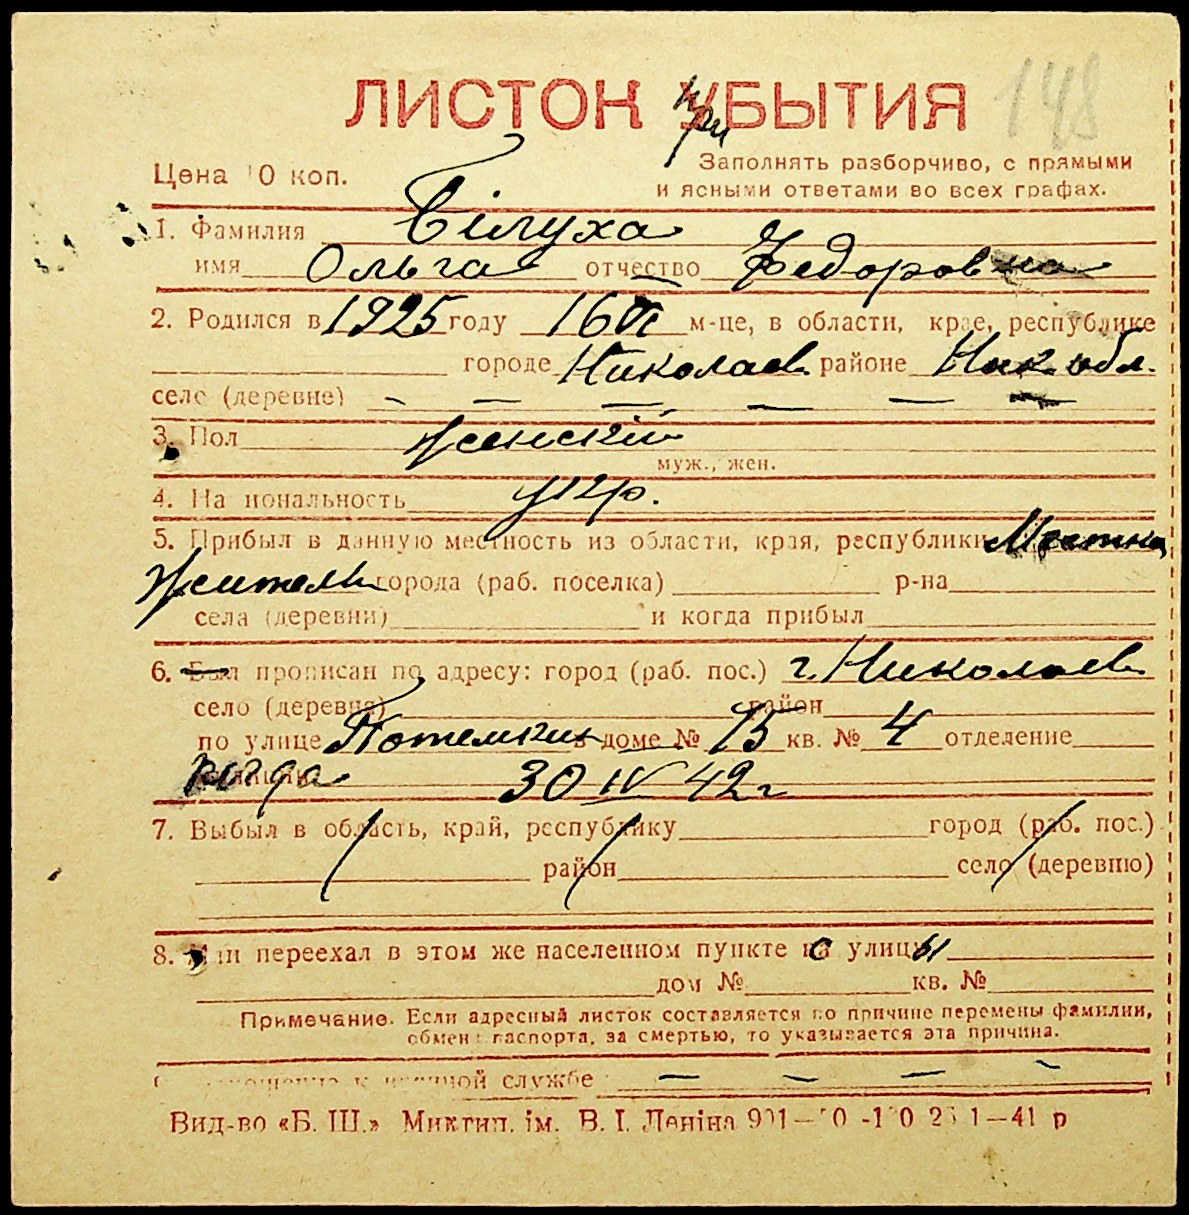 148
ЛИСТОК УБЫТИЯ
при
Цена 10 коп.
Заполнять разборчиво, с прямыми
и ясными ответами во всех графах.
1. Фамилия Білуха
имя Ольга отчество Федоровна
2. Родился в 1925 году 16 VI м-це, в области, крае, республике
городе Николаев районе Ник обл.
село (деревне) — — — — — —
3. Пол женский
муж., жен.
4. На иональность укр.
5. Прибыл в данную местность из области, края, республики Местный
житель города (раб. поселка) р-на
села (деревни) и когда прибыл
6. Был прописан по адресу: город (раб. пос.) г. Николаев
село (деревня) район
по улице Потемкин в доме № 15 кв. № 4 отделение
когда 30 IV 42 г
7. Выбыл в область, край, республику город (раб. пос.)
район село (деревню)
8. Или переехал в этом же населенном пункте с улицы
дом № кв. №
Примечание. Если адресный листок составляется по причине перемены фамилии,
обмена паспорта, за смертью, то указывается эта причина.
службе — — — —
Вид-во «Б. Ш.» Миктип. ім. В. І. Леніна 1—41 р